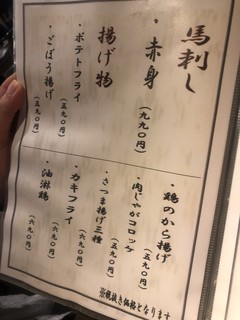 馬刺し
・赤身
(九九〇円)
揚げ物
・ポテトフライ
(五九〇円)
・ごぼう揚げ
(五九〇円)
・鶏のから揚げ
(五九〇円)
・肉じゃがコロッケ
(五九〇円)
・さつま揚げ三種
(六九〇円)
・カキフライ
(六九〇円)
・油淋鶏
(六九〇円)
※税抜き価格となります